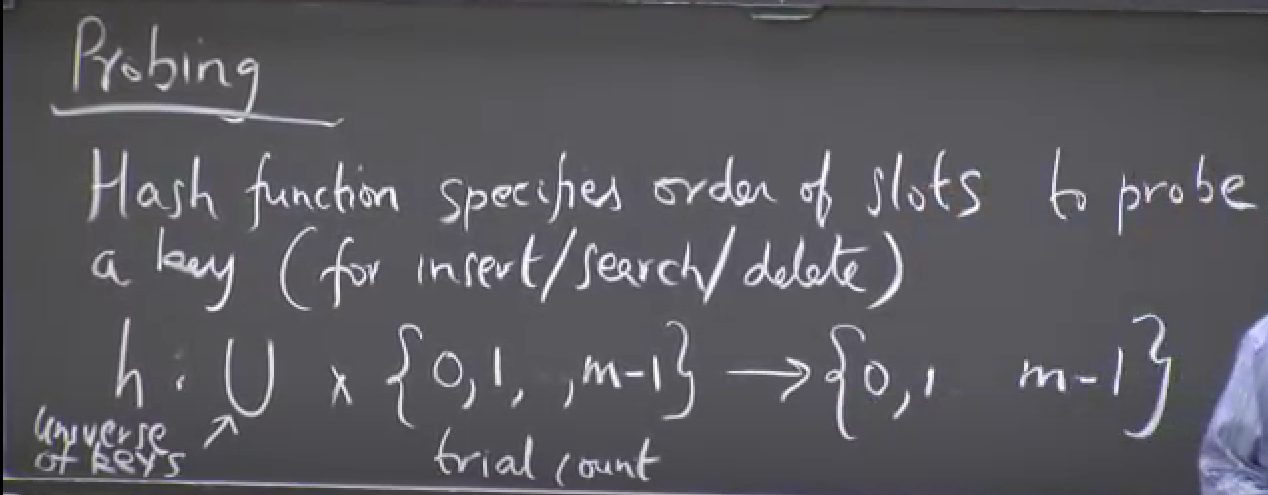 Probing
Hash function specifies order of slots to probe
a key (for insert/search/delete)
h : U x {0,1, ,m-1} → {0,1 m-1}
universe
of keys
trial count